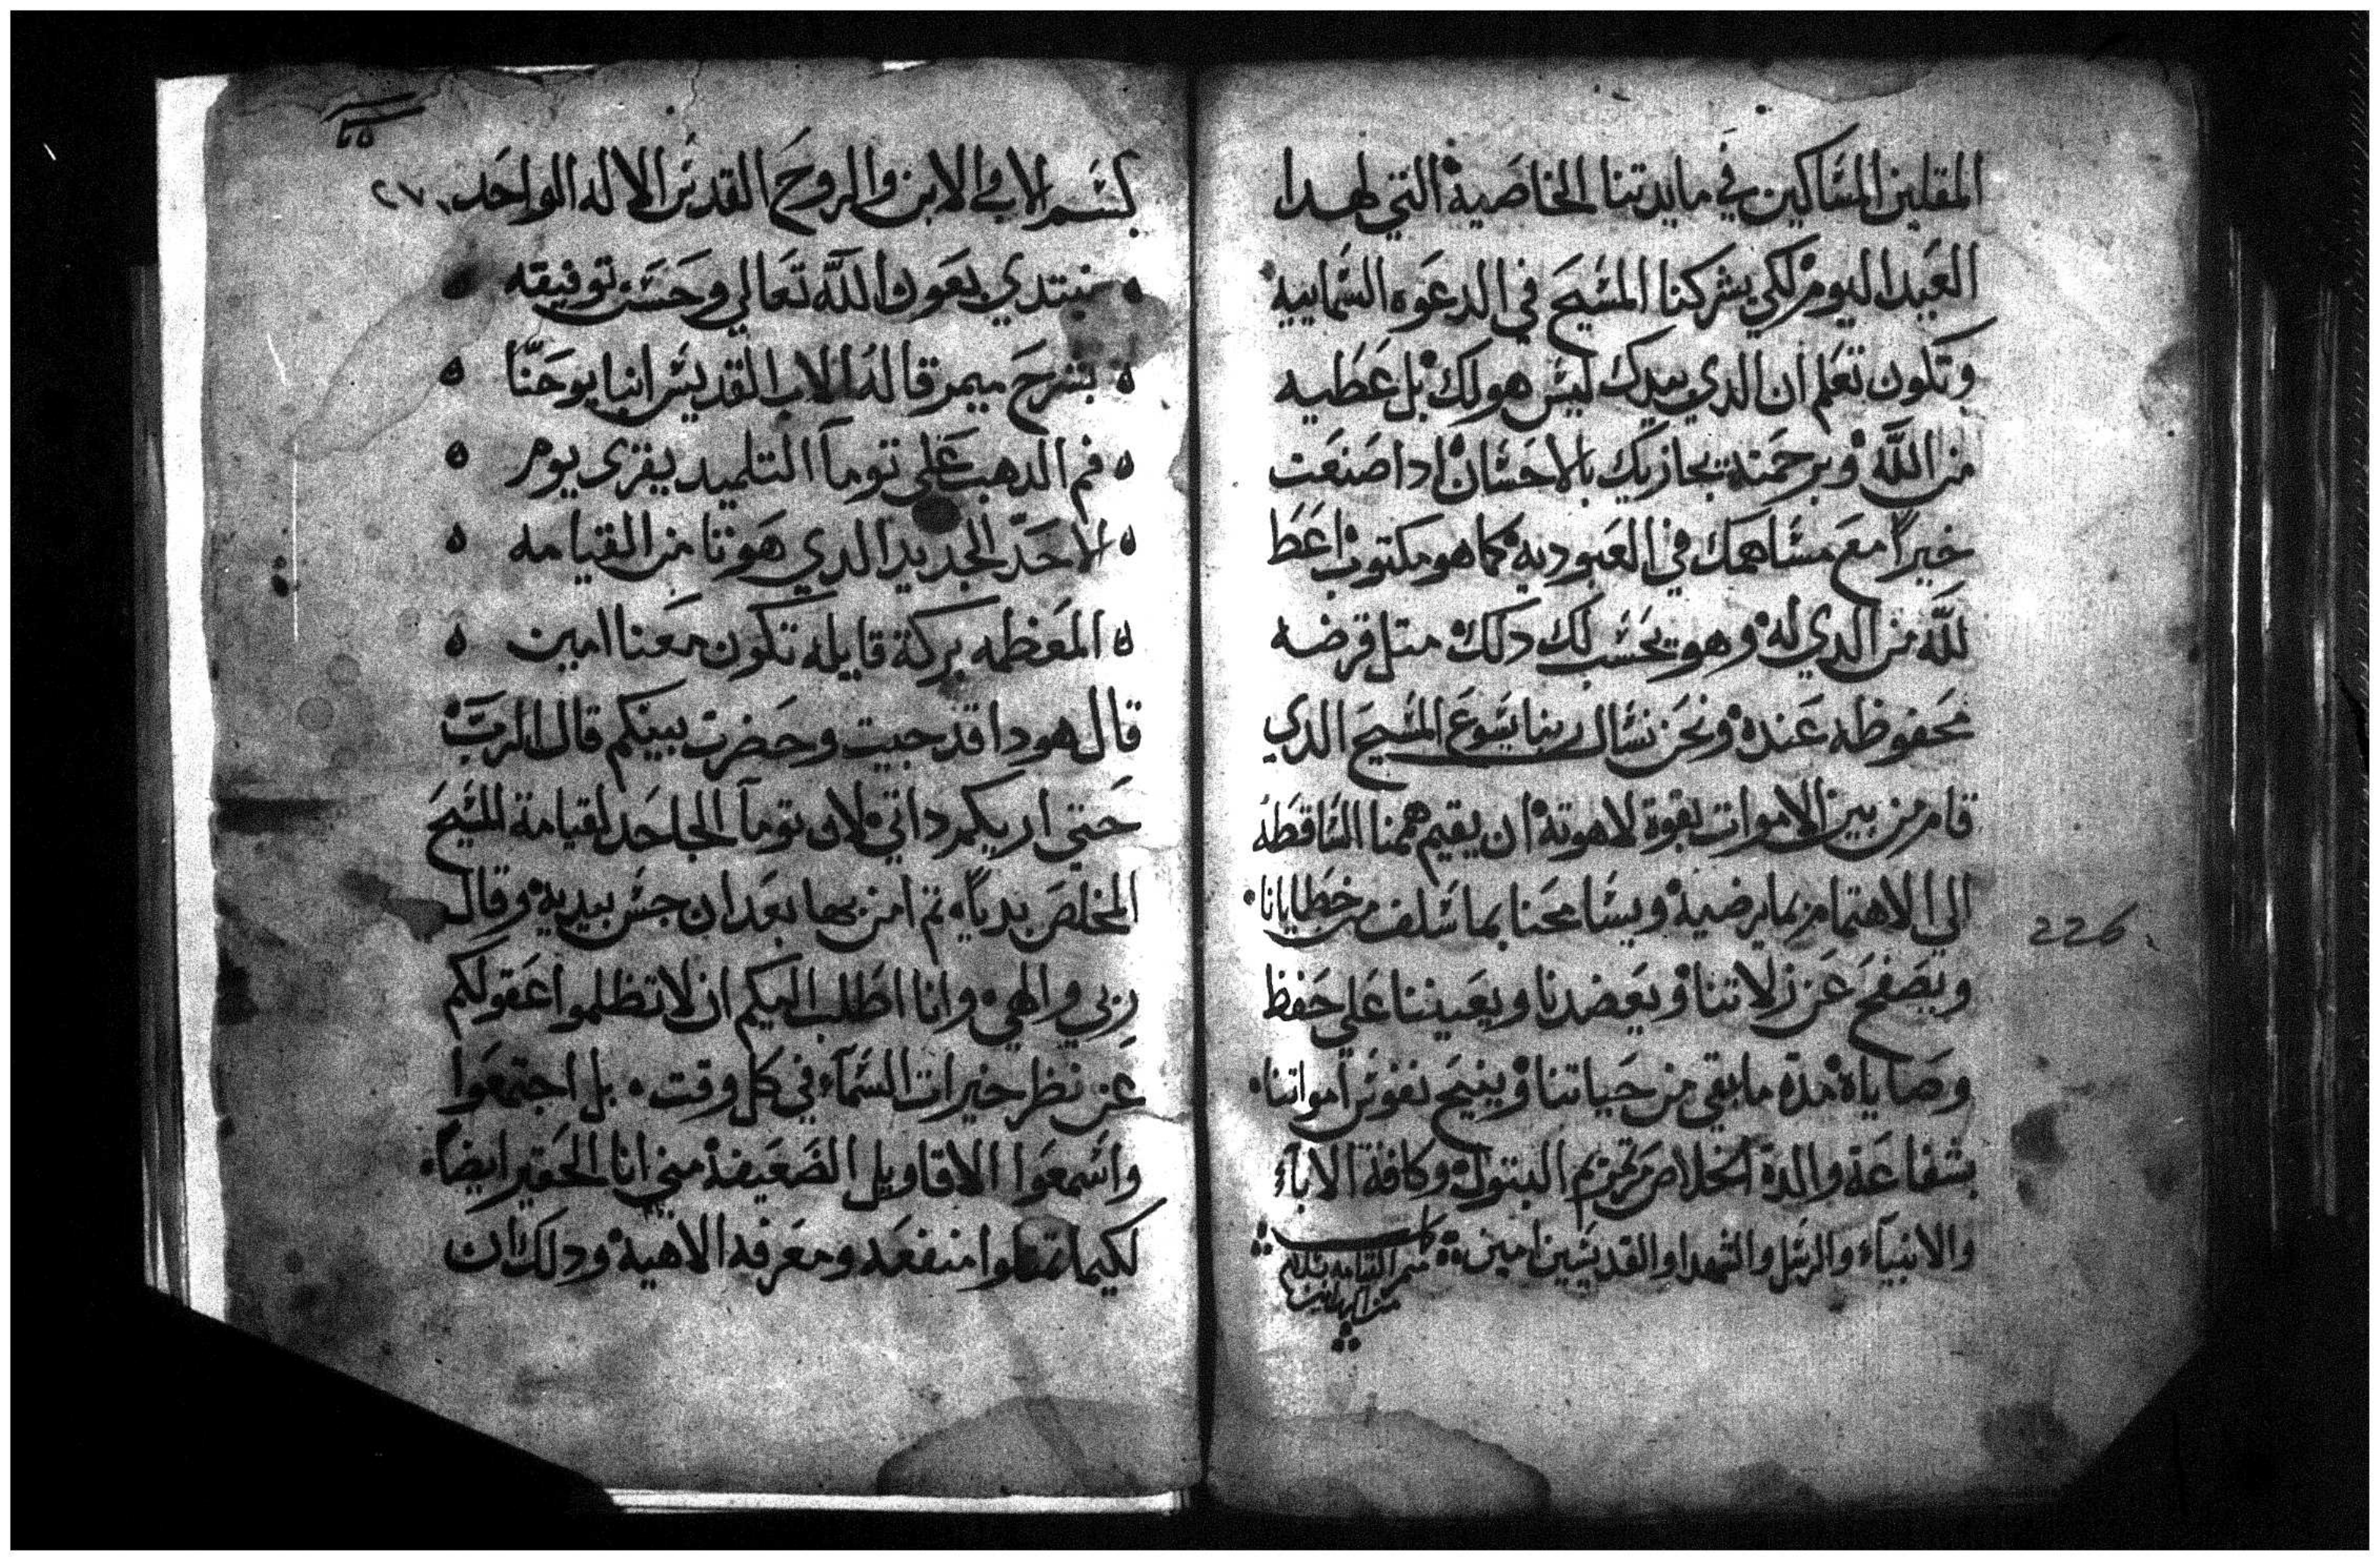 المقلين المساكين في مايدتنا الخاصية التي لهدا
العيد اليوم لكي يشركنا المسيح في الدعوه السماييه
وتكون تعلم ان الدي بيدك ليس هو لك بل عطيه
من الله وبرحمته يجازيك بالاحسان ادا صنعت
خيراً مع مساهمك في العبوديه كما هو مكتوب اعط
لله من الدي له وهو يحسب لك دلك متل قرضه
محفوظه عنده ونحن نسال ربنا يسوع المسيح الدي
قام من بين الاموات بقوة لاهوته ان يقيم هممنا الساقطه
الي الاهتمام بما يرضيه ويسامحنا بما سلف من خطايانا
ويصفح عن زلاتنا ويعضدنا ويعيننا علي حفظ
وصاياه مدة ما بقي من حياتنا وينيح نفوس امواتنا
بشفاعة والدة الخلاص مرتمريم البتول وكافة الاباء
والانبياء والرسل والشهدا والقديسين امين
226
بسم الاب والابن والروح القدس الاله الواحد ٢٧
نبتدي بعون الله تعالي وحسن توفيقه
بشرح ميمر قاله الاب القديس انبا يوحنا
فم الدهب علي توما التلميد يقري يوم
الاحد الجديد الدي هو تا من القيامه
المعظمه بركة قايله تكون معنا امين
قال هودا قد جيت وحضرت بينكم قال الرب
حتي اريكم داتي لان توما الجاحد لقيامة المسيح
المخلص بدياً تم امن بها بعد ان جس بيديه وقال
ربي والهي وانا اطلب اليكم ان لا تظلموا عقولكم
عن نظر خيرات السماء في كل وقت بل اجتمعوا
واسمعوا الاقاويل الضعيفة مني انا الحقير ايضاً
لكيما منفعه ومعرفه الاهية ودلك ان